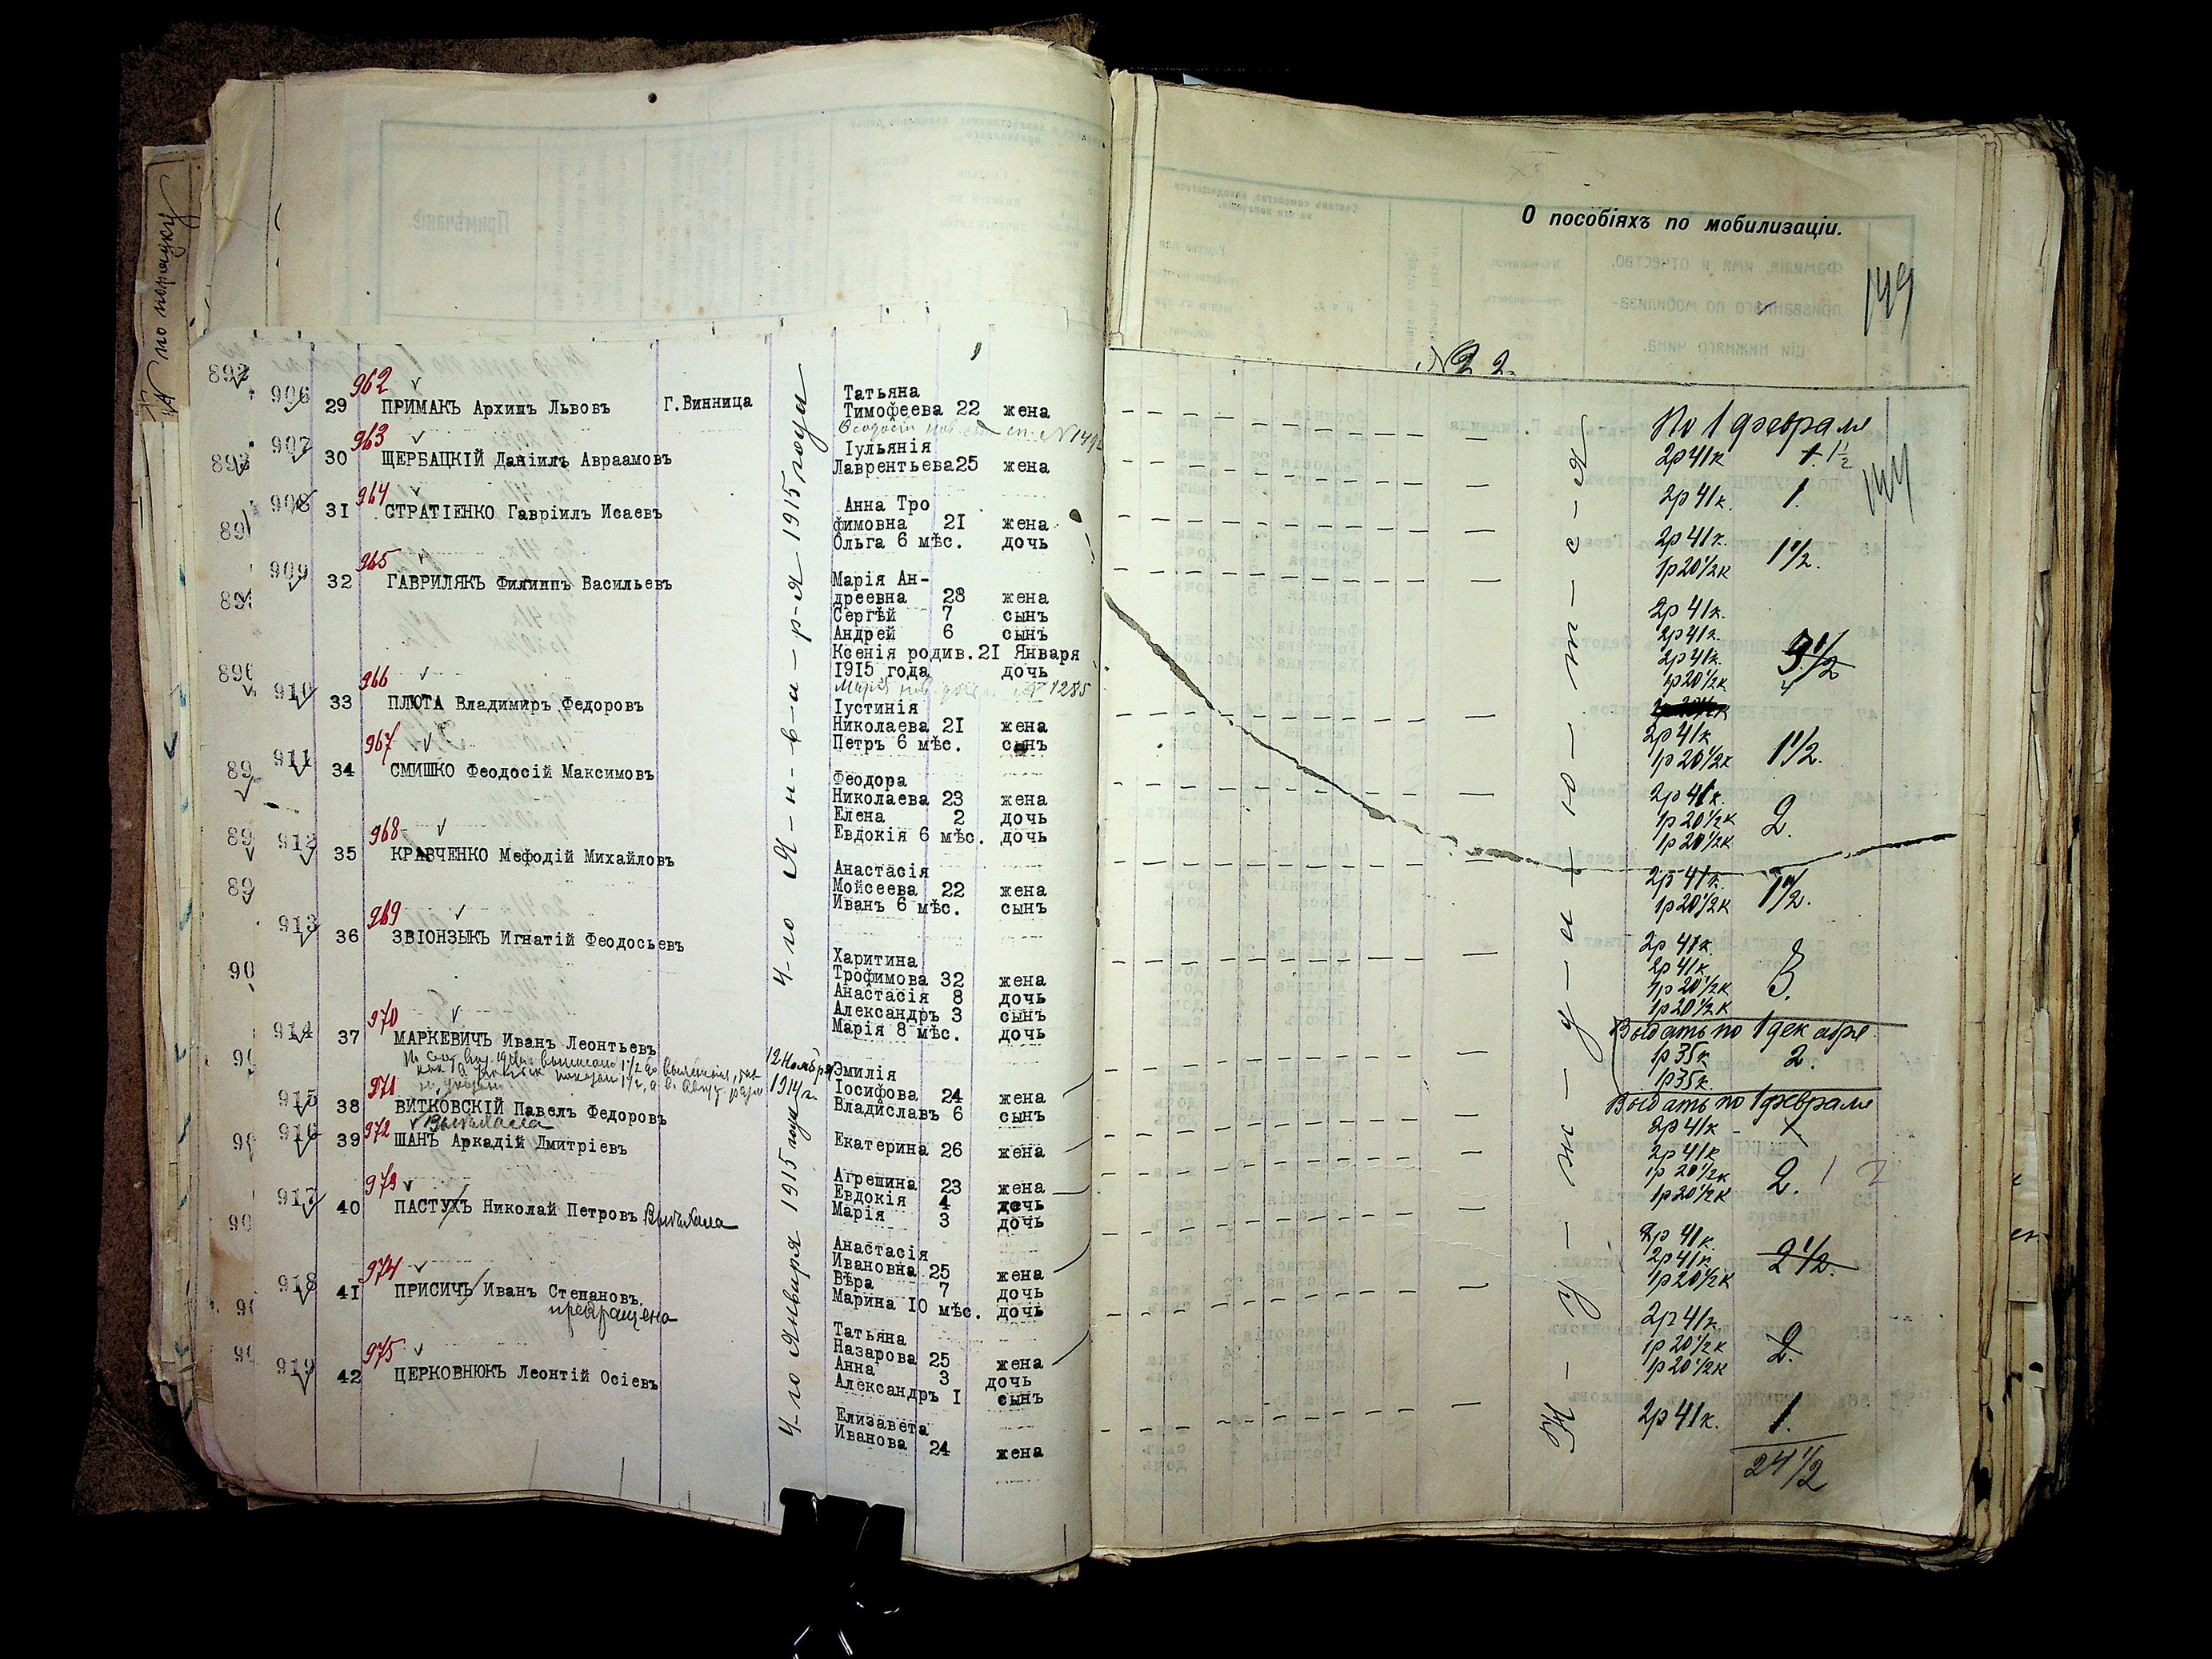 № по порядку
О пособіяхъ по мобилизаціи.
149
144
№ 2 2.
Г. Винница
4-го Я-н-в-а-р-я 1915 года
12 Ноября 1914 г.
4-го Января 1915 года
Н-у-ж-д-а-ю-т-с-я
906 29 962 ПРИМАКЪ Архипъ Львовъ
Татьяна
Тимофеева 22 жена
907 30 963 ЩЕРБАЦКІЙ Даніилъ Авраамовъ
Іульянія
Лаврентьева 25 жена
908 31 964 СТРАТІЕНКО Гавріилъ Исаевъ
Анна Тро
фимовна 21 жена
Ольга 6 мѣс. дочь
909 32 965 ГАВРИЛЯКЪ Филиппъ Васильевъ
Марія Ан-
дреевна 28 жена
Сергѣй 7 сынъ
Андрей 6 сынъ
Ксенія родив. 21 Января
1915 года дочь
№ 1285
910 33 966 ПЛЮТА Владимиръ Федоровъ
Іустинія
Николаева 21 жена
Петръ 6 мѣс. сынъ
911 34 967 СМИШКО Феодосій Максимовъ
Феодора
Николаева 23 жена
Елена 2 дочь
Евдокія 6 мѣс. дочь
912 35 968 КРАВЧЕНКО Мефодій Михайловъ
Анастасія
Мойсеева 22 жена
Иванъ 6 мѣс. сынъ
913 36 969 ЗВІОНЗЫКЪ Игнатій Феодосьевъ
Харитина
Трофимова 32 жена
Анастасія 8 дочь
Александръ 3 сынъ
Марія 8 мѣс. дочь
914 37 970 МАРКЕВИЧЪ Иванъ Леонтьевъ
Эмилія
Іосифова 24 жена
Владиславъ 6 сынъ
915 38 971 ВИТКОВСКІЙ Павелъ Федоровъ
Выѣхала
Екатерина 26 жена
916 39 972 ШАНЪ Аркадій Дмитріевъ
Агрепина 23 жена
Евдокія 4 дочь
Марія 3 дочь
917 40 973 ПАСТУХЪ Николай Петровъ Выѣхала
Анастасія
Ивановна 25 жена
Вѣра 7 дочь
Марина 10 мѣс. дочь
918 41 974 ПРИСИЧЪ Иванъ Степановъ
прекращено
Татьяна
Назарова 25 жена
Анна 3 дочь
Александръ 1 сынъ
919 42 975 ЦЕРКОВНЮКЪ Леонтій Осіевъ
Елизавета
Иванова 24 жена
По 1 февраля
2р 41к 1. 1½
2р 41к. 1.
2р 41к. 1½.
1р 20½к
2р 41к.
2р 41к.
2р 41к. 3½ 4
1р 20½к
2р 41к 1½.
1р 20½к
2р 41к.
1р 20½к 2.
1р 20½к
2р 41к. 1½.
1р 20½к
2р 41к.
2р 41к 3.
1р 20½к
1р 20½к
Выдать по 1 декабря
1р 35к 2.
1р 35к.
Выдать по 1 февраля
2р 41к - 1
2р 41к
1р 20½к 2. 1 2
1р 20½к
2р 41к.
2р 41к. 2½.
1р 20½к
2р 41к.
1р 20½к 2.
1р 20½к
2р 41к. 1.
24½